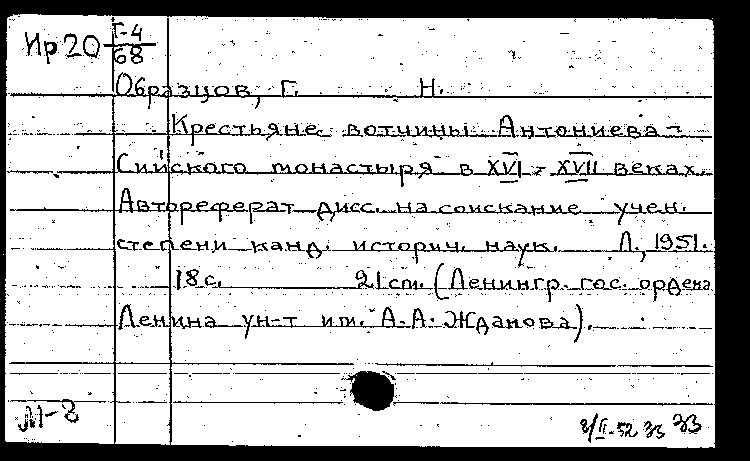 Ир 20 Г-4/68
Образцов, Г. Н.
Крестьяне вотчины Антониева-
Сийского монастыря в XVI - XVII веках.
Автореферат дисс. на соискание учен.
степени канд. историч. наук. Л., 1951.
18 с. 21 cm. (Ленингр. гос. ордена
Ленина ун-т им. А. А. Жданова).
М-8